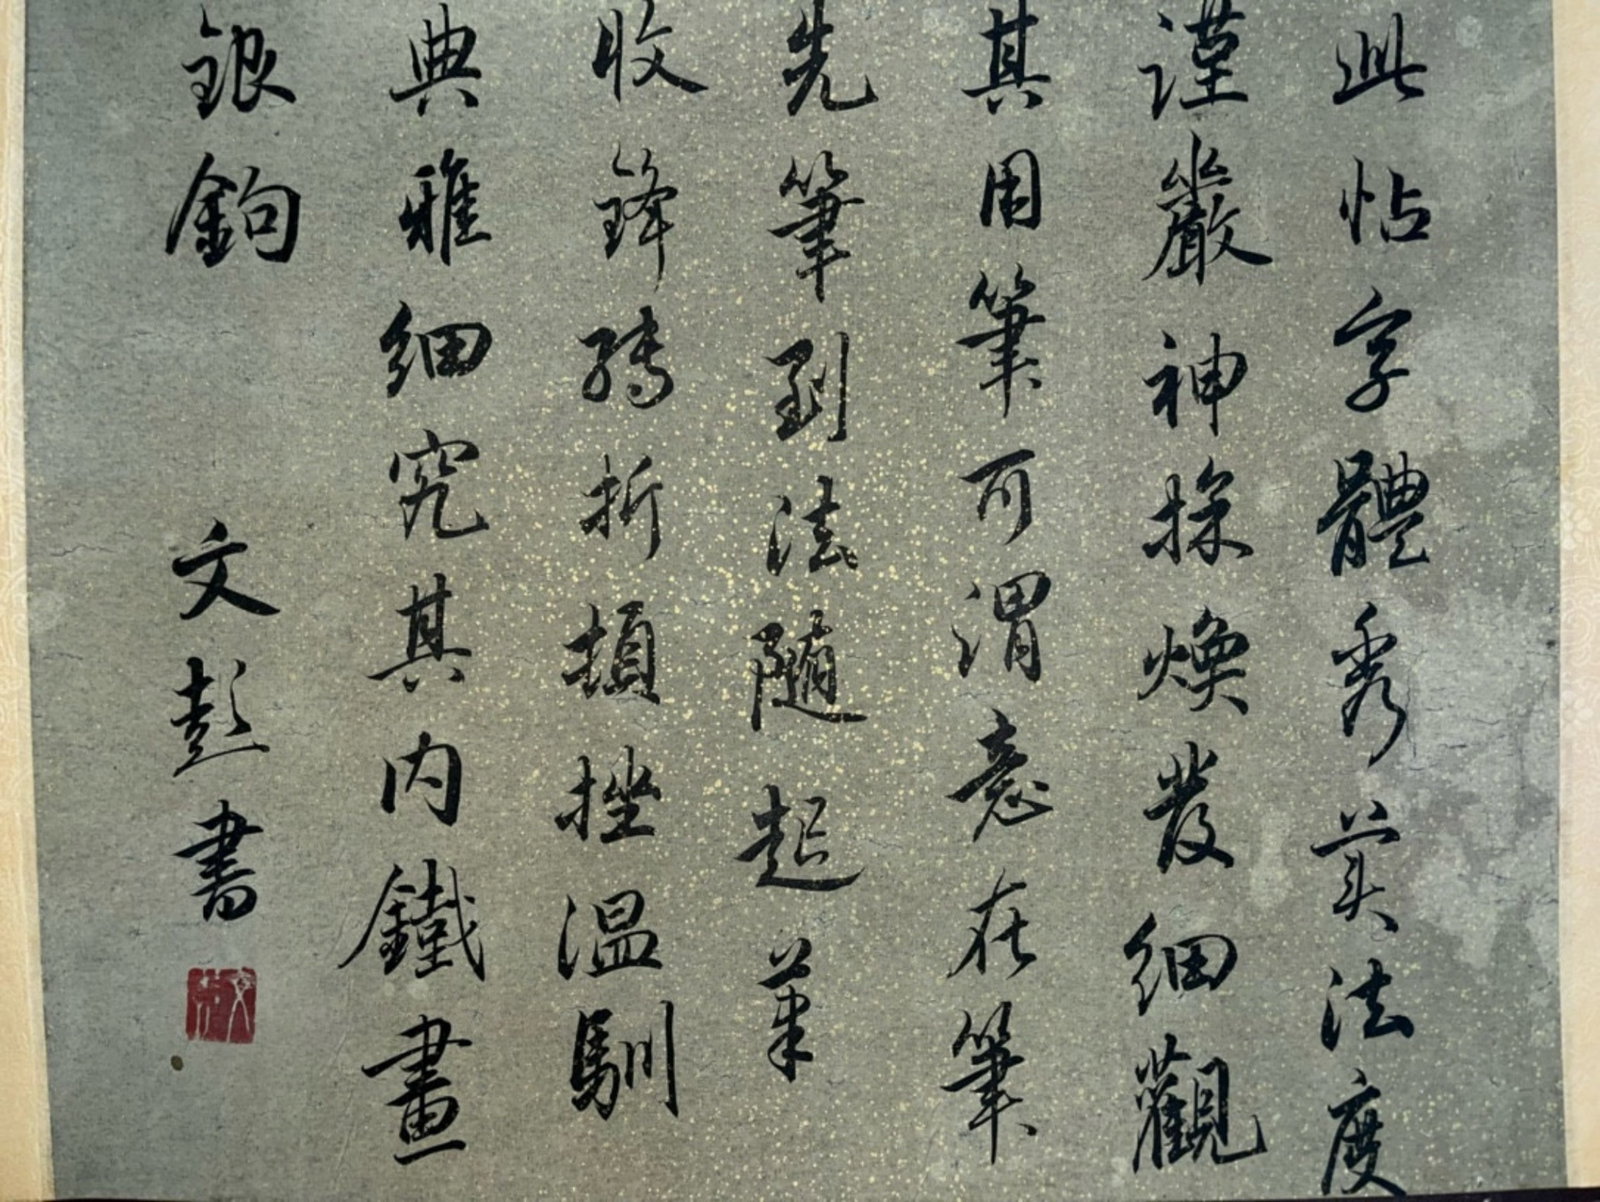 此帖字體秀美法度
謹嚴神採煥發細觀
其用筆可謂意在筆
先筆到法隨起筆
收鋒轉折頓挫溫馴
典雅細究其內鐵畫
銀鉤
文彭書